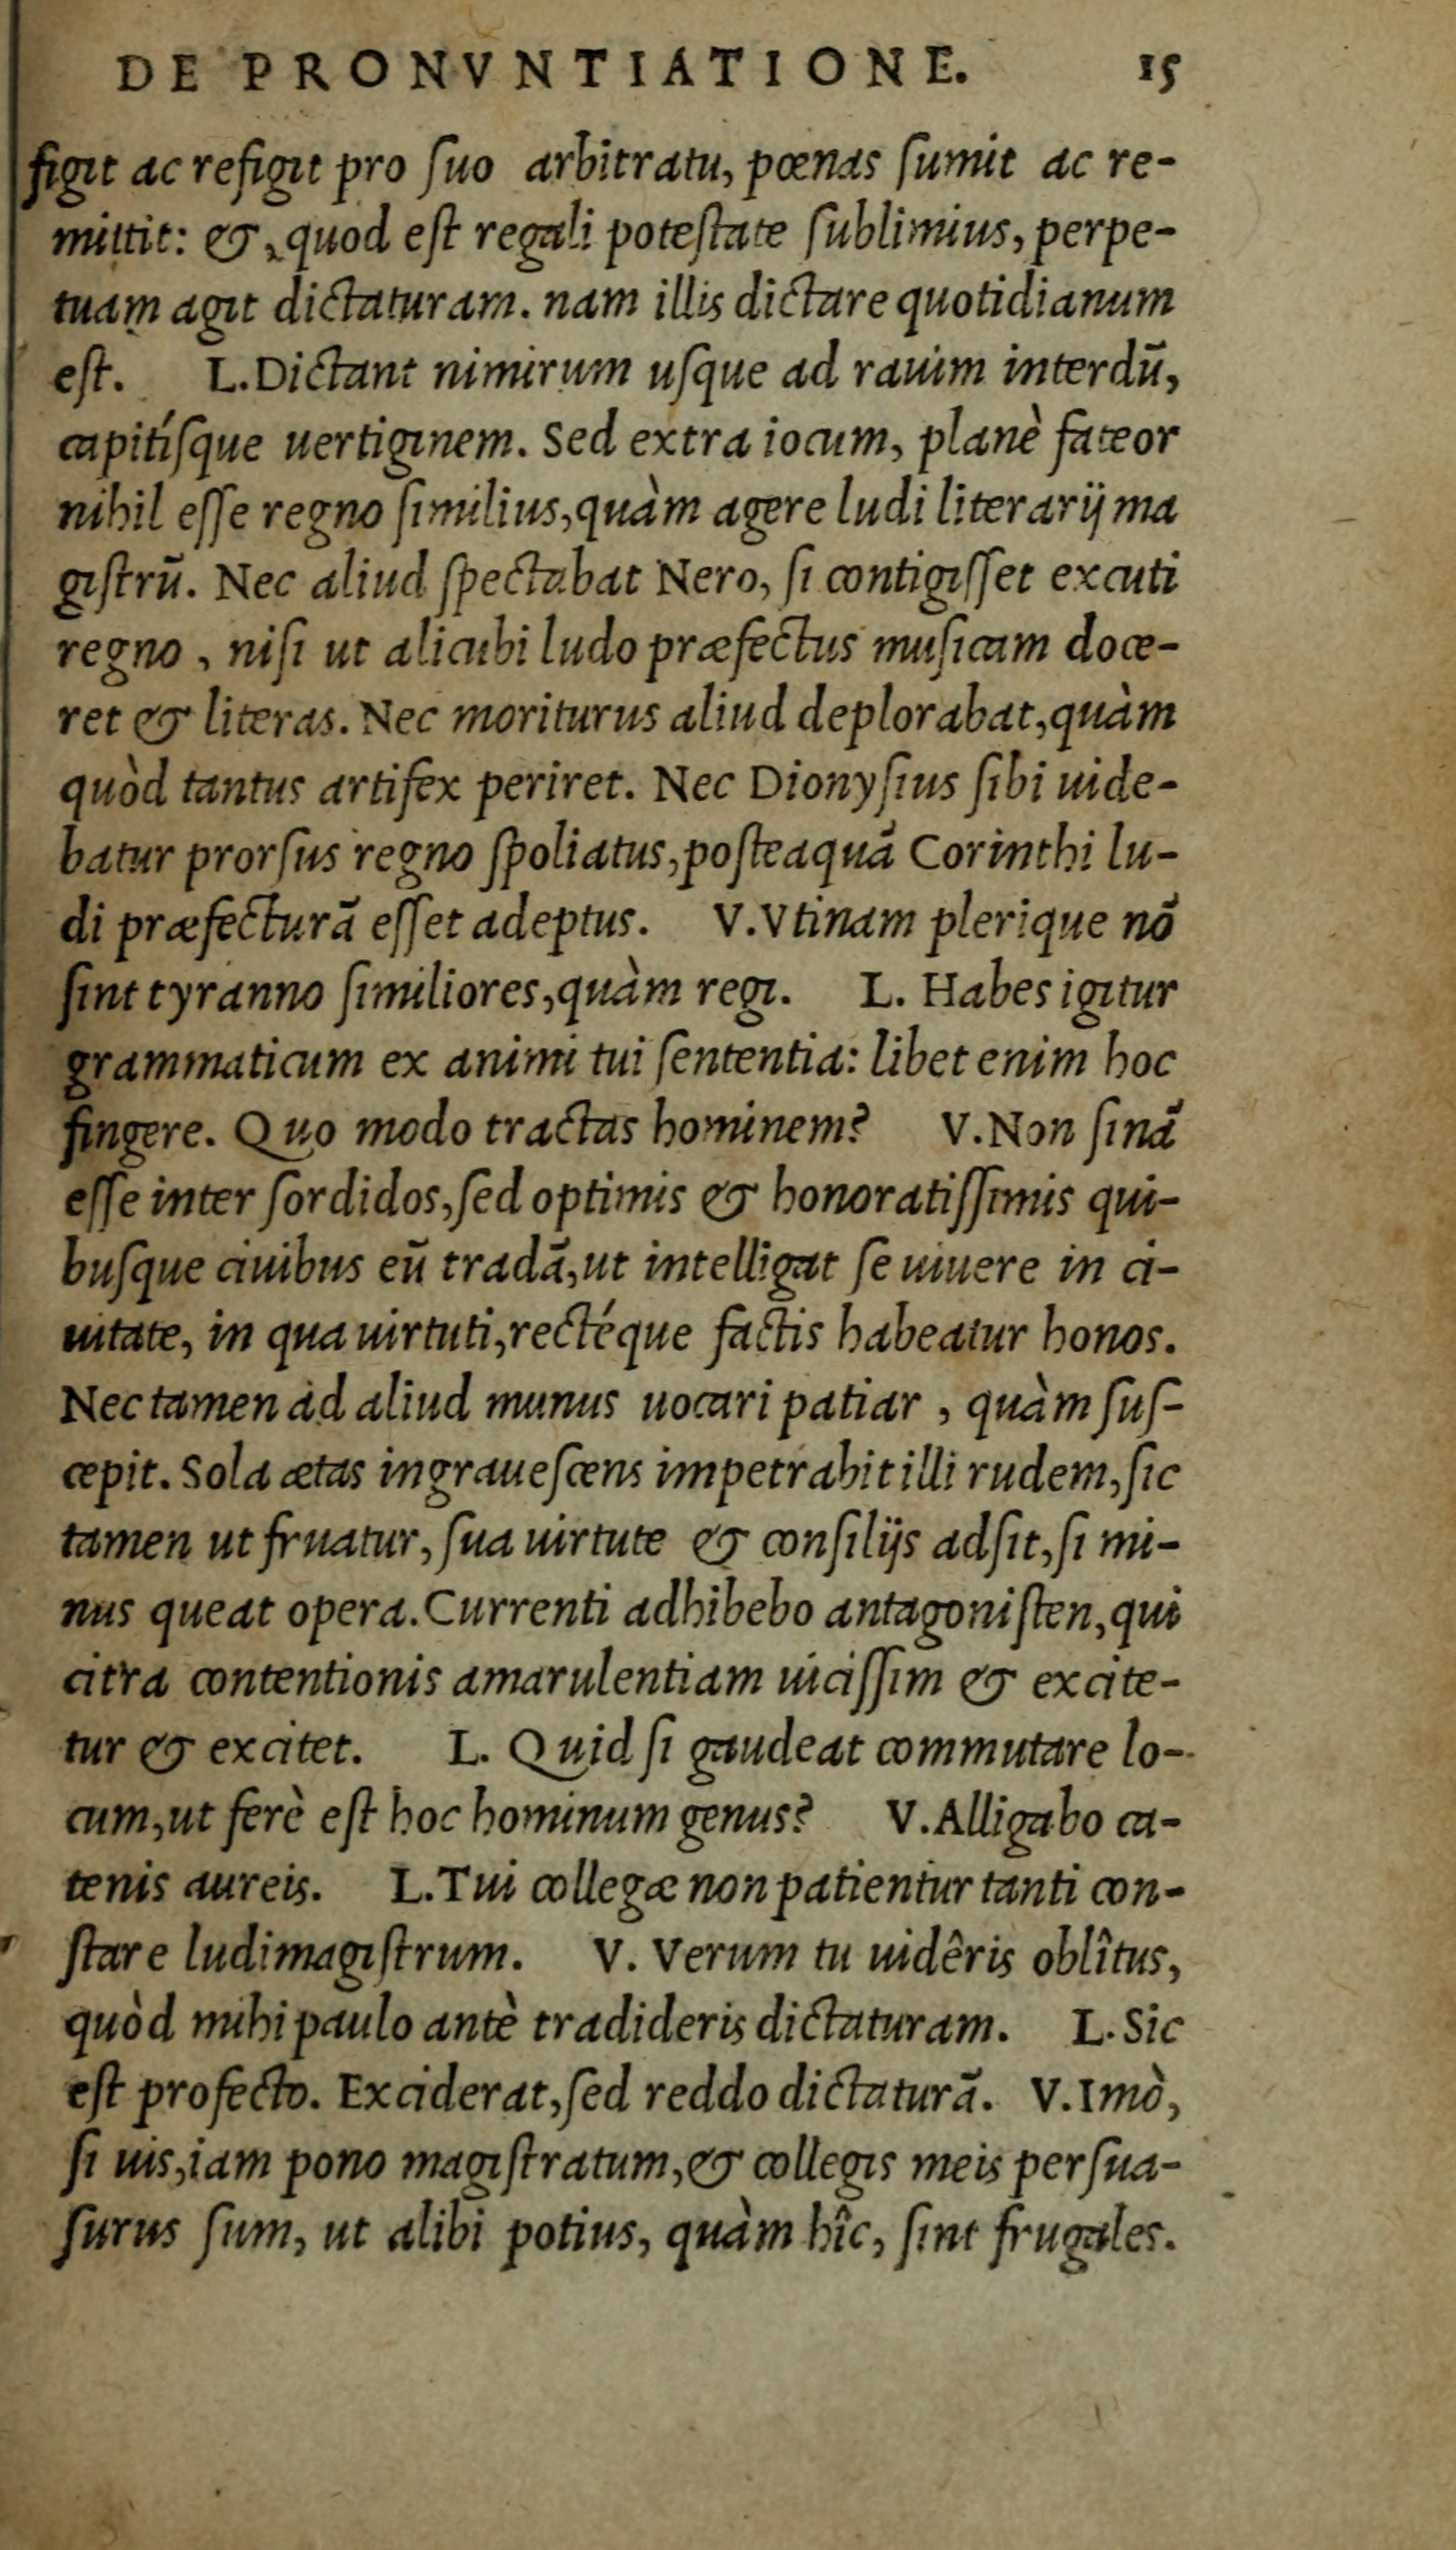 DE PRONVNTIATIONE. 15
figit ac refigit pro ſuo arbitratu, pœnas ſumit ac re-
mittit: &, quod eſt regali poteſtate ſublimius, perpe-
tuam agit dictaturam. nam illis dictare quotidianum
eſt. L. Dictant nimirum uſque ad rauim interdū,
capitíſque uertiginem. Sed extra iocum, planè fateor
nihil eſſe regno ſimilius, quàm agere ludi literarij ma
giſtrū. Nec aliud ſpectabat Nero, ſi contigiſſet excuti
regno, niſi ut alicubi ludo præfectus muſicam doce-
ret & literas. Nec moriturus aliud deplorabat, quàm
quòd tantus artifex periret. Nec Dionyſius ſibi uide-
batur prorſus regno ſpoliatus, poſteaquā Corinthi lu-
di præfecturā eſſet adeptus. V. Vtinam plerique nō
ſint tyranno ſimiliores, quàm regi. L. Habes igitur
grammaticum ex animi tui ſententia: libet enim hoc
fingere. Quo modo tractas hominem? V. Non ſinā
eſſe inter ſordidos, ſed optimis & honoratiſſimis qui-
buſque ciuibus eū tradā, ut intelligat ſe uiuere in ci-
uitate, in qua uirtuti, rectéque factis habeatur honos.
Nec tamen ad aliud munus uocari patiar, quàm ſuſ-
cepit. Sola ætas ingraueſcens impetrabit illi rudem, ſic
tamen ut fruatur, ſua uirtute & conſilijs adſit, ſi mi-
nus queat opera. Currenti adhibebo antagoniſten, qui
citra contentionis amarulentiam uiciſſim & excite-
tur & excitet. L. Quid ſi gaudeat commutare lo-
cum, ut ferè eſt hoc hominum genus? V. Alligabo ca-
tenis aureis. L. Tui collegæ non patientur tanti con-
ſtare ludimagiſtrum. V. Verum tu uidêris oblîtus,
quòd mihi paulo antè tradideris dictaturam. L. Sic
eſt profecto. Exciderat, ſed reddo dictaturā. V. Imò,
ſi uis, iam pono magiſtratum, & collegis meis perſua-
ſurus ſum, ut alibi potius, quàm hîc, ſint frugales.